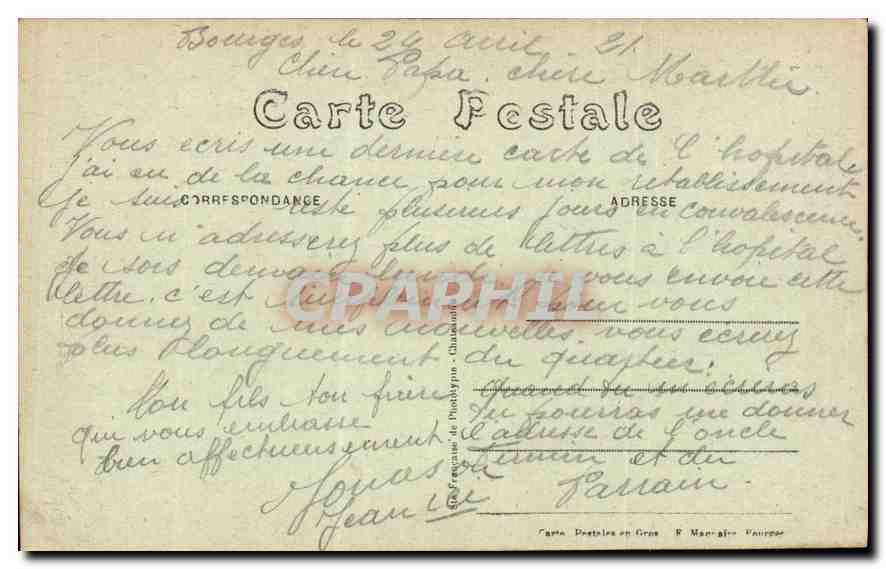 Bourges le 24 avril 21.
Cher Papa chère Marthe
Carte Postale
Vous ecris une derniere carte de l'hopital
j'ai eu de la chance pour mon retablissement
CORRESPONDANCE
ADRESSE
Je suis reste plusieurs jours en convalescence.
Vous n'adresserez plus de lettres à l'hopital
Je sors demain vous envoie cette
CPAPHIL
lettre. c'est pour vous
donner de mes nouvelles. vous ecrirez
plus longuement du quartier.
Mon fils ton frère
qui vous embrasse
bien affectueusement
Jean
quand tu m'écriras
tu pourras me donner
l'adresse de l'oncle
et du
Parrain.
Sté Française de Phototypie - Chateaudun
Carte Postales en Gros E. Maquaire Bourges